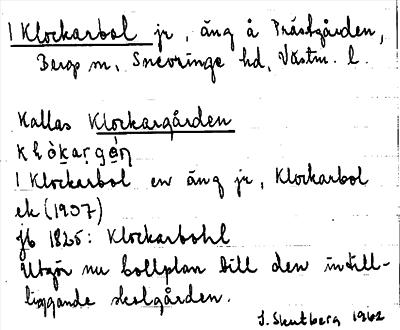 1 Klockarbol jr, äng å Prästgården,
Bergs sn, Snevringe hd, Västm. l.
Kallas Klockargården
1 Klockarbol en äng jr, Klockarbol
ek (1937)
jb 1825: Klockarbohl
Utgör nu bollplan till den intill-
liggande skolgården.
I. Skutberg 1962